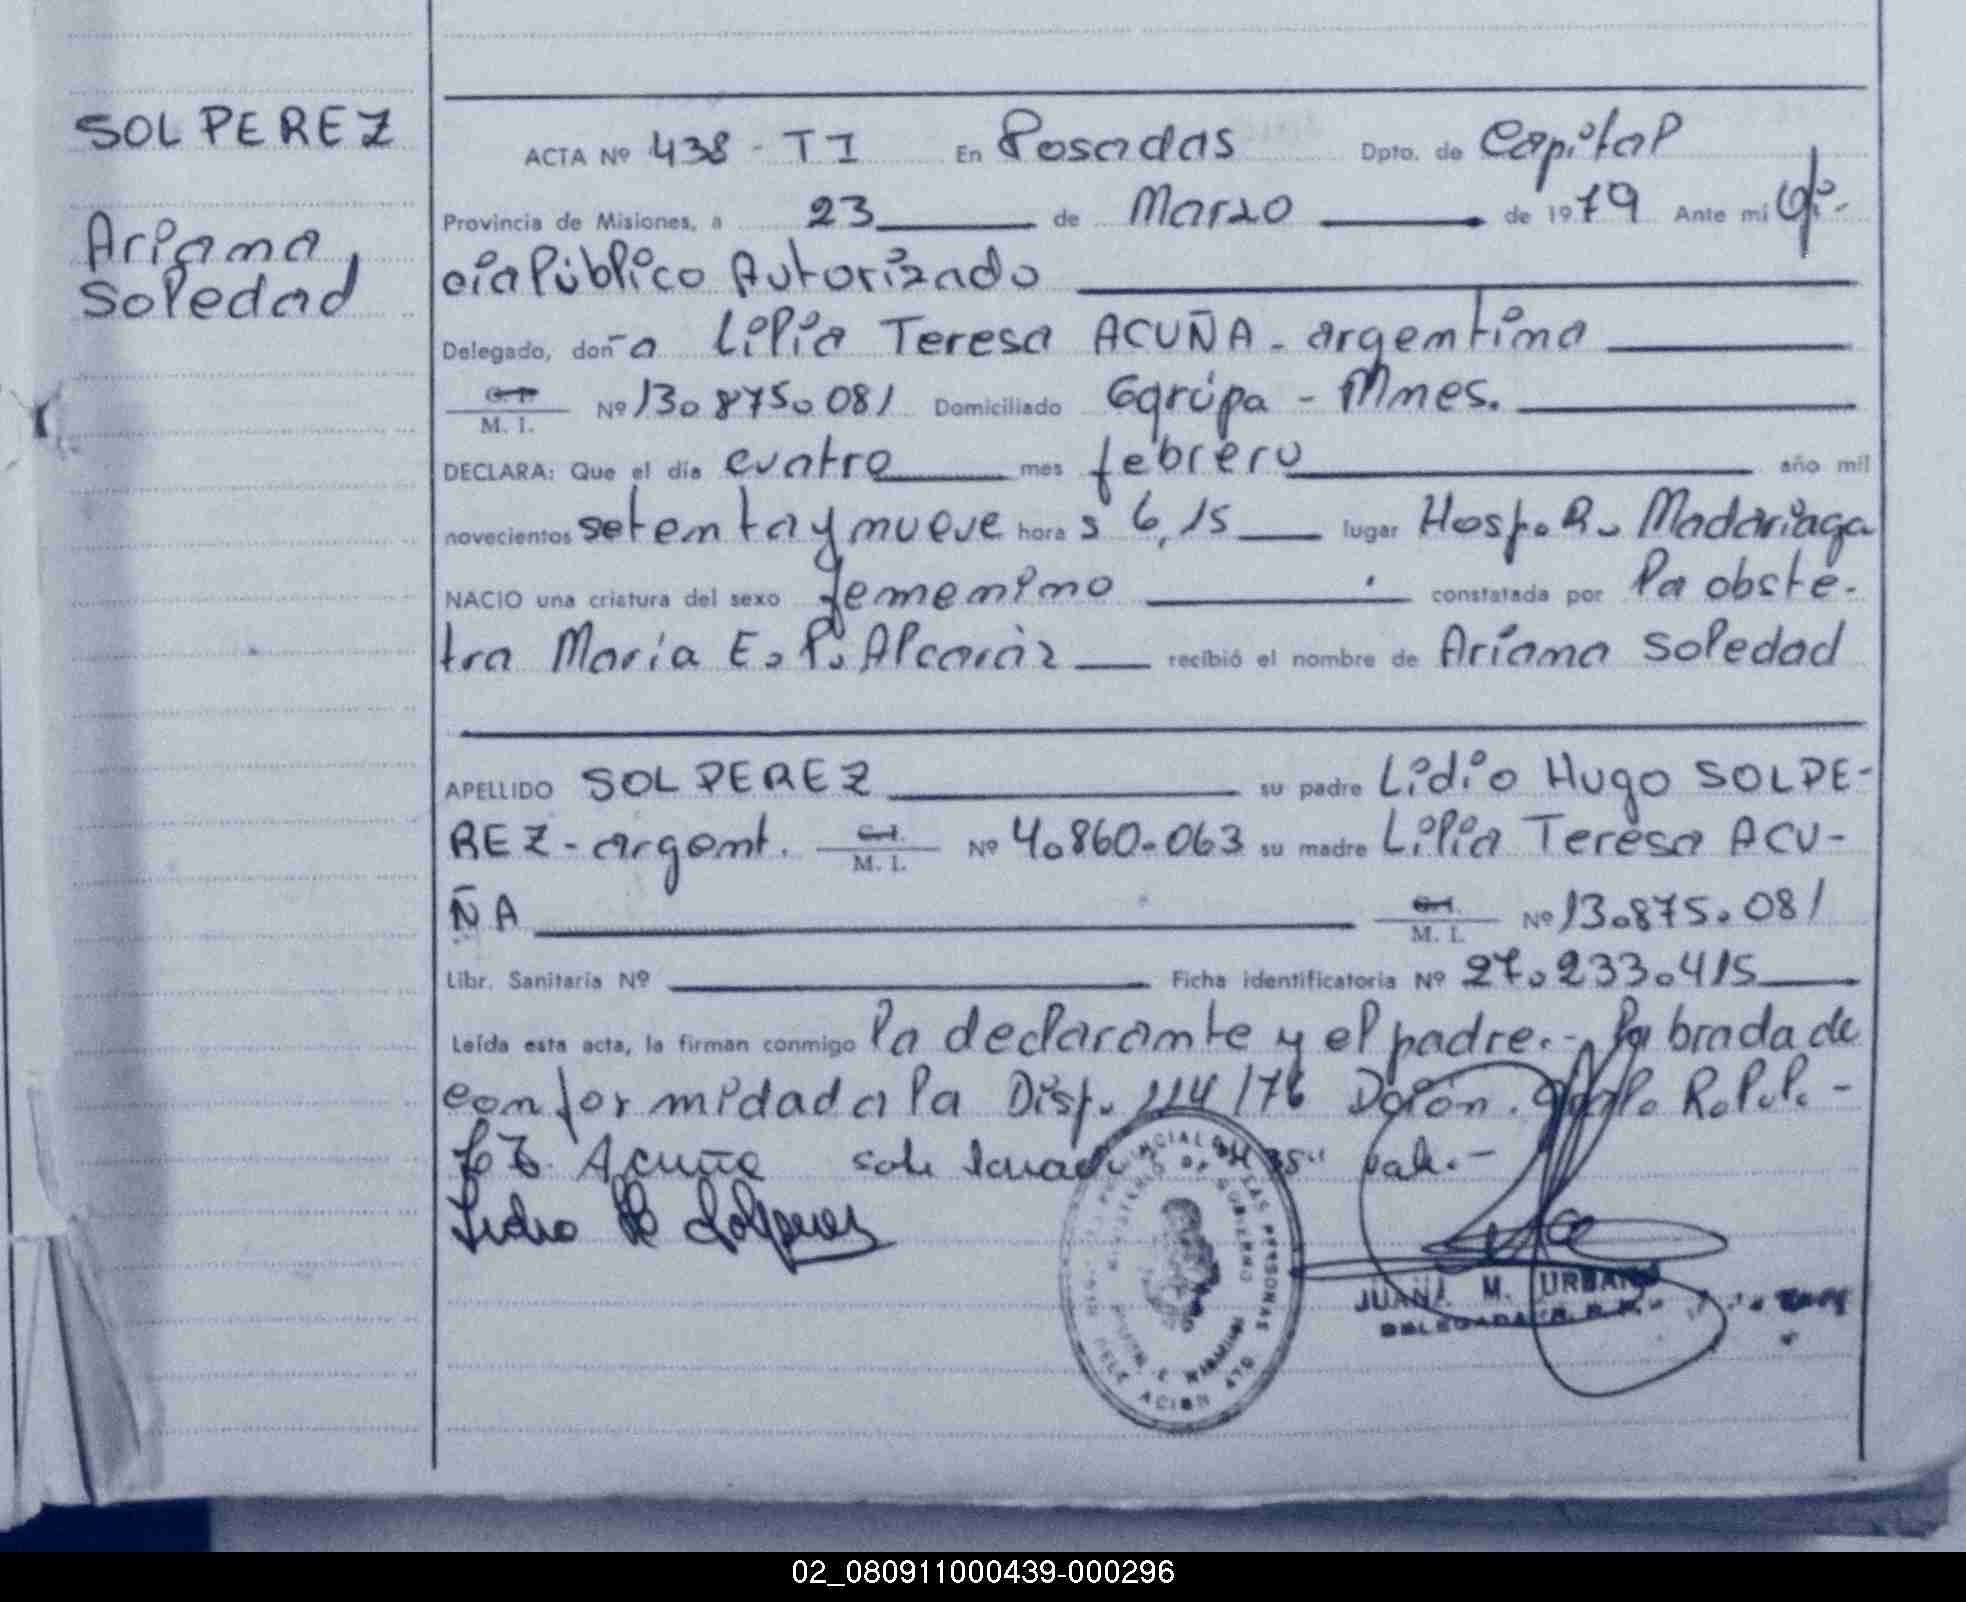 SOLPEREZ
Ariana
Soledad
ACTA Nº 438 - T I En Posadas Dpto. de Capital
Provincia de Misiones, a 23 de Marzo de 1979 Ante mí Ofi-
cial Público Autorizado
Delegado, doña Lilia Teresa ACUÑA - argentina
C.I. M. I. Nº 13.875.081 Domiciliado Garupa - Mnes.
DECLARA: Que el día cuatro mes febrero año mil
novecientos setenta y nueve hora s 6,15 lugar Hosp. R. Madariaga
NACIO una criatura del sexo femenino constatada por la obste-
tra María E. P. Alcaráz recibió el nombre de Ariana Soledad
APELLIDO SOLPEREZ su padre Lidio Hugo SOLPE-
REZ - argent. C.I. M. I. Nº 4.860.063 su madre Lilia Teresa ACU-
ÑA C.I. M. I. Nº 13.875.081
Libr. Sanitaria Nº Ficha identificatoria Nº 27.233.415
Leída esta acta, la firman conmigo la declarante y el padre.- labrada de
conformidad a la Disp. 114/76 Dción. Gral. R.P.P. -
L T. Acuña vale.-
Lidio H Solperez
PROVINCIAL DE LAS PERSONAS
MINISTERIO DE GOBIERNO
JUANA M. URBANO
DELEGADA R. P. P.
02_080911000439-000296